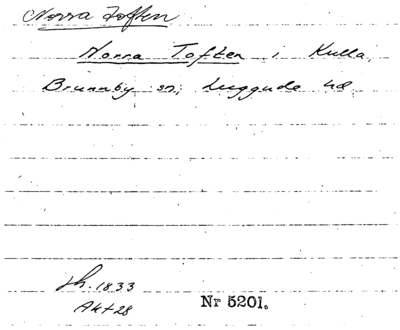 Norra Toften
Norra Toften i Kulla,
Brunnby sn, Luggude hd
Lh. 1833
Akt 28
Nr 5201.